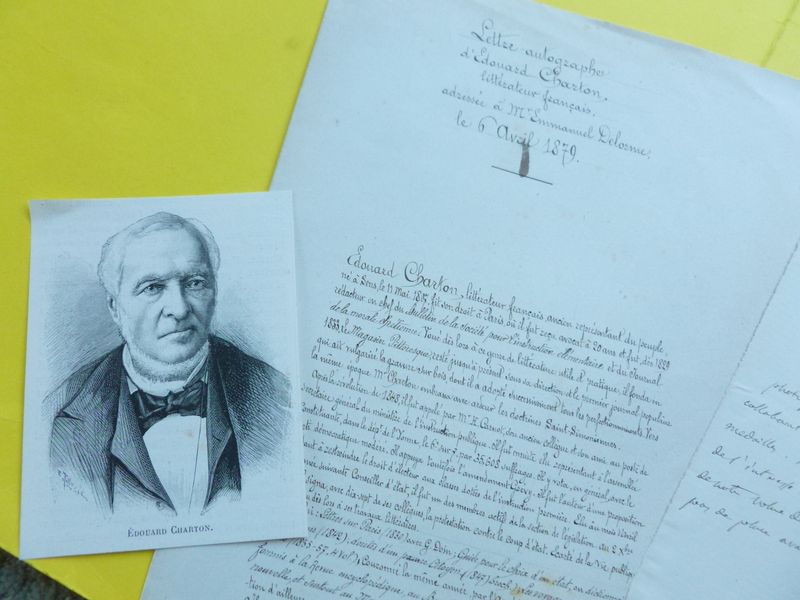 Lettre autographe
d'Edouard Charton,
littérateur français,
adressée à Mr Emmanuel Delorme,
le 6 Avril 1879.
Edouard Charton, littérateur français ancien représentant du peuple,
né à Sens, le 11 Mai 1807, fit son droit à Paris, où il fut reçu avocat à 20 ans et fut, dès 1829
rédacteur en chef du Bulletin de la Société pour l'instruction élémentaire et du Journal
de la morale chrétienne. Voué dès lors à ce genre de littérature utile et pratique, il fonda en
1833, le Magasin Pittoresque, resté jusqu'à présent sous sa direction et le premier journal populaire
qui ait vulgarisé la gravure sur bois dont il a adopté successivement tous les perfectionnements. Vers
la même époque Mr Charton embrassa avec ardeur les doctrines Saint-Simoniennes.
Après la révolution de 1848, il fut appelé par Mr H. Carnot, son ancien collègue et son ami, au poste de
secrétaire général du ministère de l'instruction publique. Il fut ensuite élu représentant à l'assemblée
constituante, dans le dépt de l'Yonne le 6e sur 9 par 35,503 suffrages. Il y vota, en général avec le
démocratique modéré. Il appuya toutefois l'amendement Grévy. Il fut l'auteur d'une proposition
à restreindre le droit d'électeur aux élèves dotés de l'instruction première. Elu au mois d'Avril
suivant Conseiller d'état, il fut un des membres actifs de la section de législation. au 2 Xbre
signa, avec dix-sept de ses collègues, la protestation contre le coup d'état. Sorti de la vie publique
dès lors à ses travaux littéraires.
: Lettres sur Paris (1830, avec G. Doin; Guide pour le choix d'un état, ou dictionnaire
(1842) d'un pauvre Citoyen (1847)
1855-57, 4 vol.), couronné la même année, par l'
à la forme encyclopédique, au
nouvelle, et surtout au M
tion d'ailleurs
collabora
médailles
de l'
de notre
pas de place
ÉDOUARD CHARTON.